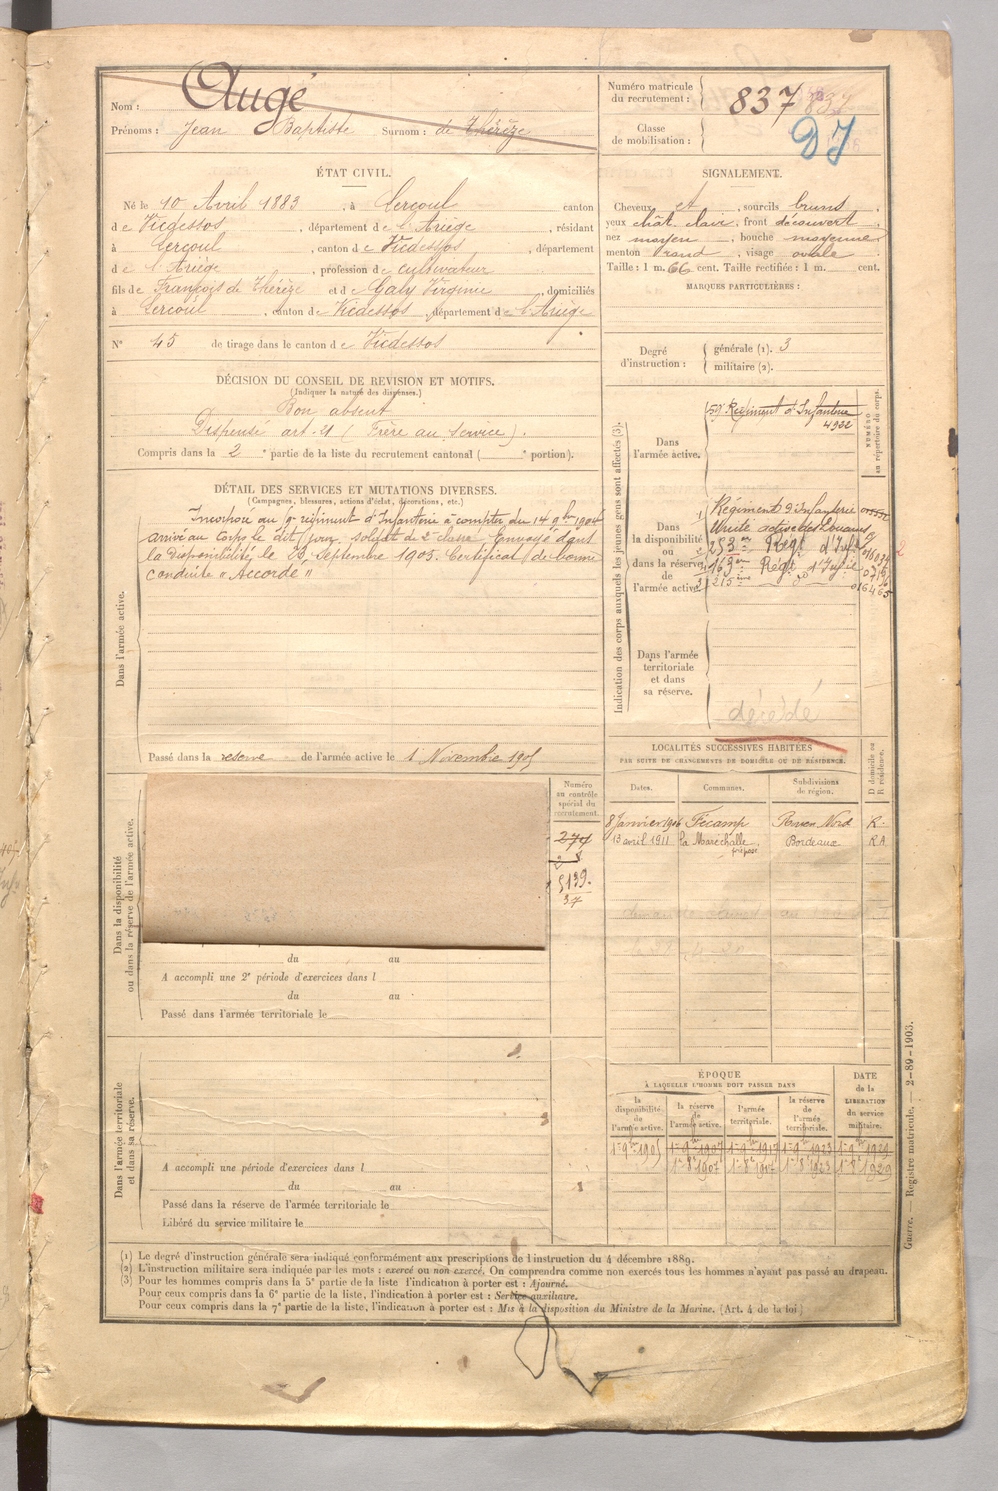 Nom : Augé
Prénoms : Jean Baptiste Surnom : de Thérèze
Numéro matricule du recrutement : 837
Classe de mobilisation :
DJ
ÉTAT CIVIL.
Né le 10 Avril 1883, à Lercoul canton
de Vicdessos, département de l'Ariège, résidant
à Lercoul, canton de Vicdessos, département
de l'Ariège, profession de cultivateur
fils de François de Thérèze et de Galy Virginie, domiciliés
à Lercoul, canton de Vicdessos, département de l'Ariège
N° 45 de tirage dans le canton de Vicdessos
SIGNALEMENT.
Cheveux et, sourcils bruns
yeux chât. clair, front découvert
nez moyen, bouche moyenne
menton rond, visage ovale
Taille : 1 m. 66 cent. Taille rectifiée : 1 m. cent.
MARQUES PARTICULIÈRES :
Degré d'instruction :
générale (1). 3
militaire (2).
DÉCISION DU CONSEIL DE REVISION ET MOTIFS.
(Indiquer la nature des dispenses.)
Bon absent
Dispensé art. 21 (Frère au service).
Compris dans la 2e partie de la liste du recrutement cantonal (e portion).
DÉTAIL DES SERVICES ET MUTATIONS DIVERSES.
(Campagnes, blessures, actions d'éclat, décorations, etc.)
Incorporé au régiment d'Infanterie à compter du 14 9bre 1904
arrivé au Corps le dit jour, soldat de 2e classe. Envoyé dans
la disponibilité le 23 Septembre 1905. Certificat de bonne
conduite « Accordé »
Dans l'armée active.
Passé dans la réserve de l'armée active le 1 Novembre 1907
Indication des corps auxquels les jeunes gens sont affectés (3).
NUMÉRO au répertoire du corps.
Dans l'armée active.
59e Régiment d'Infanterie
4922
Dans la disponibilité ou dans la réserve de l'armée active.
Régiment d'Infanterie
Unité active des Douanes
253me Regt d'Infie
163me Regt d'Infie
215ème do
016465
Dans l'armée territoriale et dans sa réserve.
décédé
LOCALITÉS SUCCESSIVES HABITÉES
PAR SUITE DE CHANGEMENTS DE DOMICILE OU DE RÉSIDENCE.
D domicile ou R résidence.
Dates. Communes. Subdivisions de région.
8 Janvier 1906 Fécamp Rouen Nord R.
13 avril 1911 La Maréchalle, préposé Bordeaux RA
Dans la disponibilité ou dans la réserve de l'armée active.
Numéro au contrôle spécial du recrutement.
274
5139.
37
du au
A accompli une 2e période d'exercices dans l
du au
Passé dans l'armée territoriale le
Dans l'armée territoriale et dans sa réserve.
A accompli une période d'exercices dans l
du au
Passé dans la réserve de l'armée territoriale le
Libéré du service militaire le
ÉPOQUE
À LAQUELLE L'HOMME DOIT PASSER DANS
DATE de la LIBÉRATION du service militaire.
la disponibilité de l'armée active
la réserve de l'armée active.
l'armée territoriale.
la réserve de l'armée territoriale.
1er 9bre 1905 1er 9bre 1907 1er 9bre 1917 1er 9bre 1923 1er 9bre 1929
1er 8bre 1907 1er 8bre 1917 1er 8bre 1923 1er 8bre 1929
Guerre. — Registre matricule. — 2-89-1903.
(1) Le degré d'instruction générale sera indiqué conformément aux prescriptions de l'instruction du 4 décembre 1889.
(2) L'instruction militaire sera indiquée par les mots : exercé ou non exercé. On comprendra comme non exercés tous les hommes n'ayant pas passé au drapeau.
(3) Pour les hommes compris dans la 5e partie de la liste l'indication à porter est : Ajourné.
Pour ceux compris dans la 6e partie de la liste, l'indication à porter est : Service auxiliaire.
Pour ceux compris dans la 7e partie de la liste, l'indication à porter est : Mis à la disposition du Ministre de la Marine. (Art. 4 de la loi.)